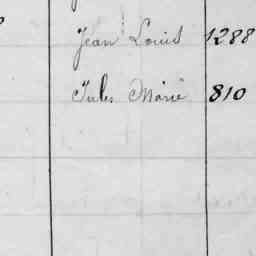 Jean Louis 1288
Jules Marie 810